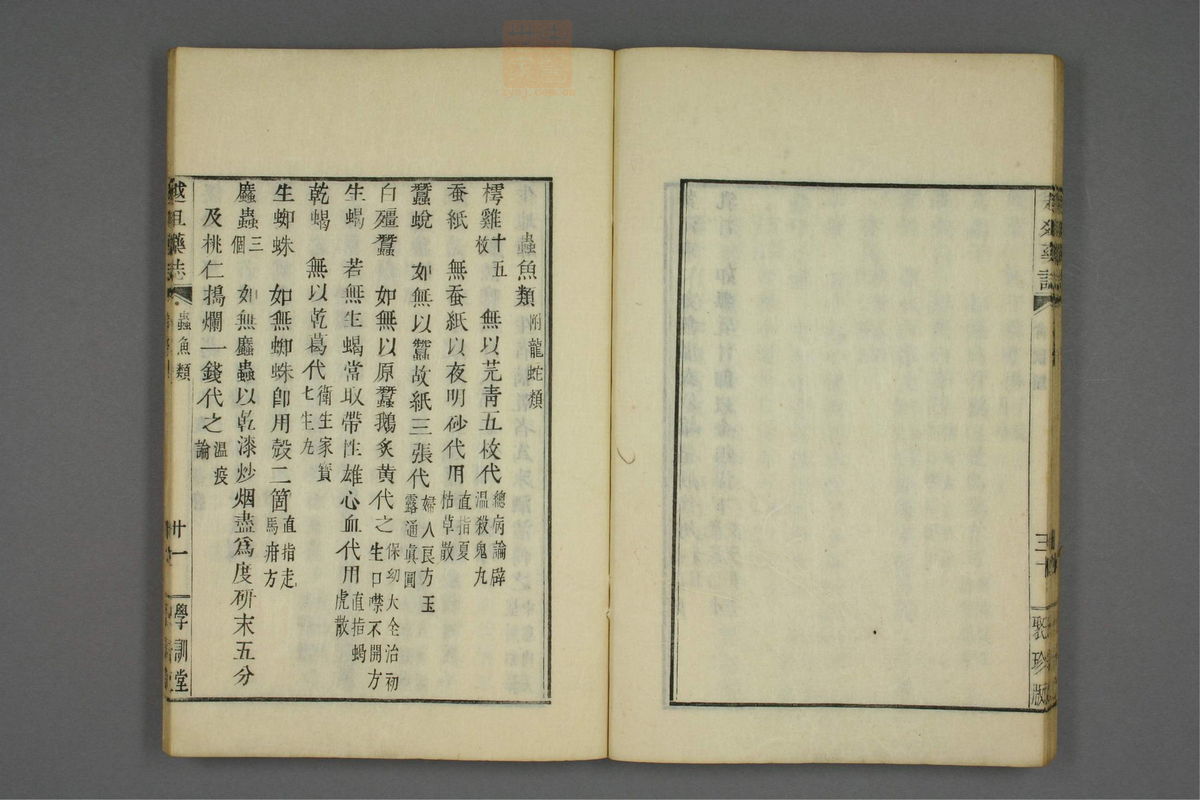 三十
聚珍版
蟲魚類附龍蛇類
樗雞十五枚 無以芫青五枚代總病論辟溫殺鬼丸
蚕紙 無蚕紙以夜明砂代用直指夏枯草散
蠶蛻 如無以蠶故紙三張代婦人良方玉露通眞圓
白殭蠶 如無以原蠶鵝炙黄代之保幼大全治初生口噤不開方
生蝎 若無生蝎當取帶性雄心血代用直指蝎虎散
乾蝎 無以乾葛代衛生家寶七生丸
生蜘蛛 如無蜘蛛卽用殼二箇直指走馬疳方
䗪蟲三個 如無䗪蟲以乾漆炒烟盡爲度研末五分
及桃仁搗爛一錢代之溫疫論
藥誌
蟲魚類
廿一
學訓堂